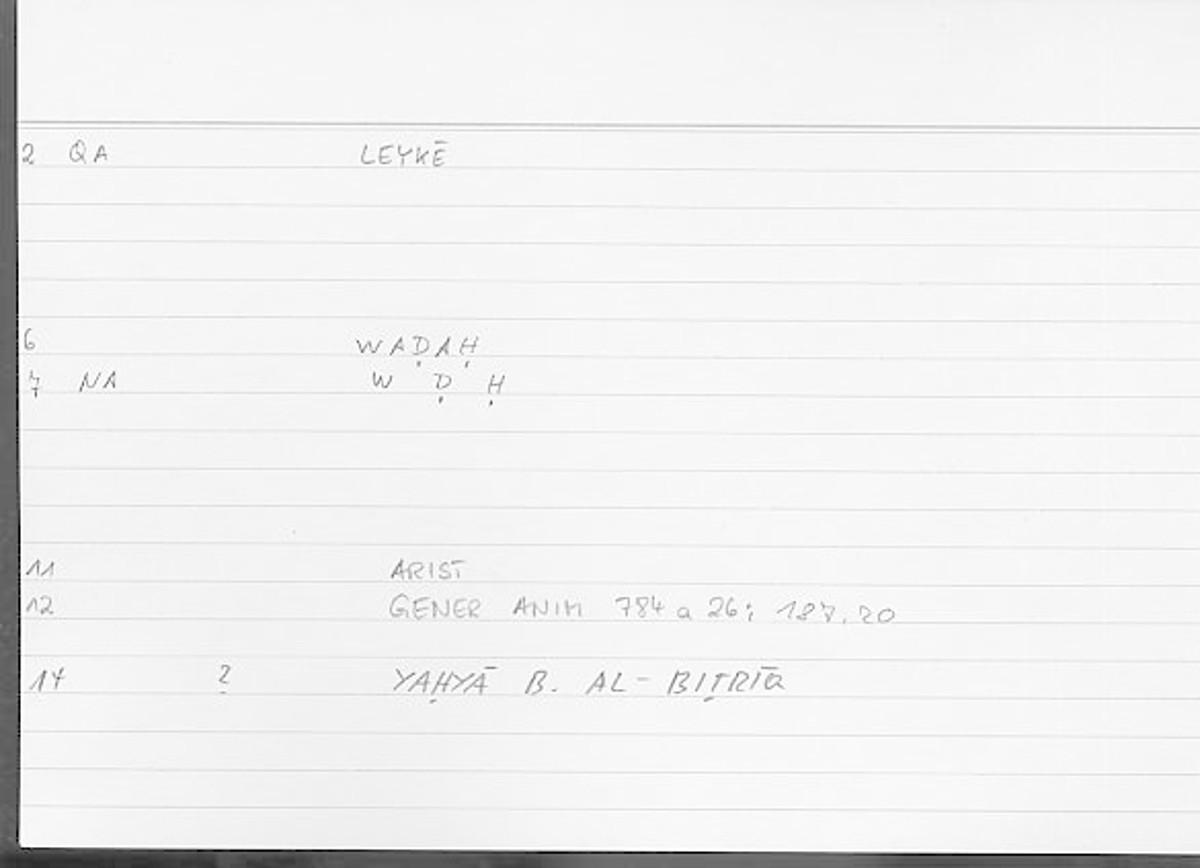 2 QA LEYKĒ
6 WAḌAḤ
7 NA W Ḍ Ḥ
11 ARIST
12 GENER ANIM 784 a 26; 187.20
14 ? YAḤYĀ B. AL-BIṬRĪQ